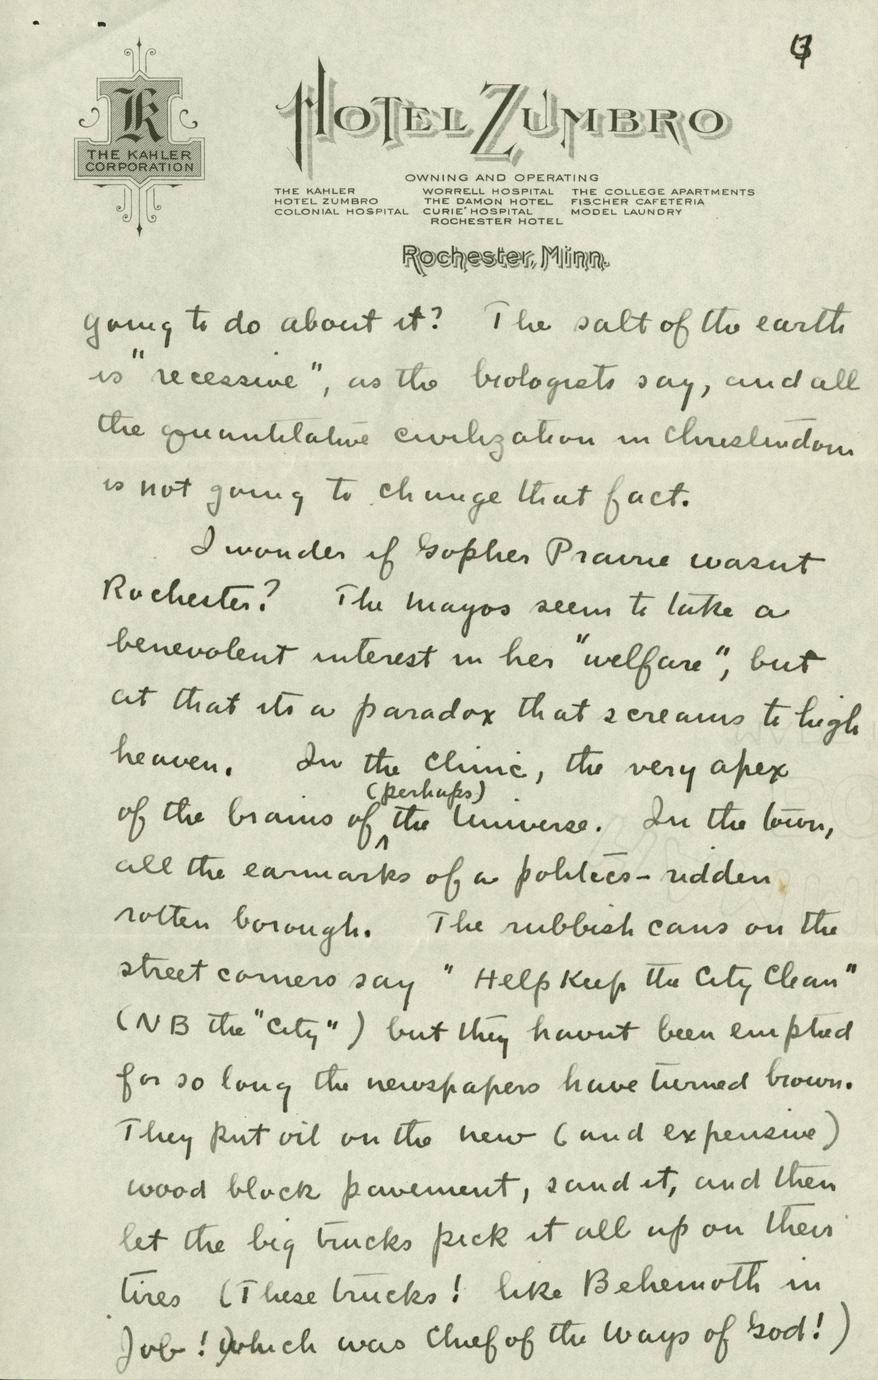 K
THE KAHLER
CORPORATION
HOTEL ZUMBRO
OWNING AND OPERATING
THE KAHLER WORRELL HOSPITAL THE COLLEGE APARTMENTS
HOTEL ZUMBRO THE DAMON HOTEL FISCHER CAFETERIA
COLONIAL HOSPITAL CURIE HOSPITAL MODEL LAUNDRY
ROCHESTER HOTEL
Rochester, Minn.
going to do about it? The salt of the earth
is "recessive", as the biologists say, and all
the quantitative civilization in Christendom
is not going to change that fact.
I wonder if Gopher Prairie wasnt
Rochester? The Mayos seem to take a
benevolent interest in her "welfare", but
at that its a paradox that screams to high
heaven. In the Clinic, the very apex
(perhaps)
of the brains of ^ the Universe. In the town,
all the earmarks of a politics-ridden
rotten borough. The rubbish cans on the
street corners say "Help Keep the City Clean"
(NB the "City") but they havnt been emptied
for so long the newspapers have turned brown.
They put oil on the new (and expensive)
wood block pavement, sand it, and then
let the big trucks pick it all up on their
tires (These trucks! like Behemoth in
Job! which was Chief of the Ways of God!)